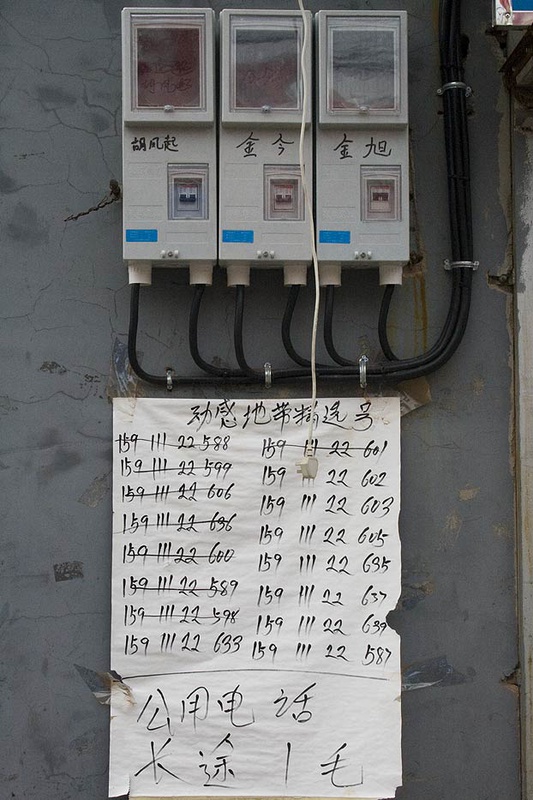 胡凤起
金今
金旭
动感地带精选号
159 111 22 588
159 111 22 599
159 111 22 606
159 111 22 636
159 111 22 600
159 111 22 589
159 111 22 598
159 111 22 633
159 111 22 601
159 111 22 602
159 111 22 603
159 111 22 605
159 111 22 635
159 111 22 637
159 111 22 639
159 111 22 587
公用电话
长途1毛